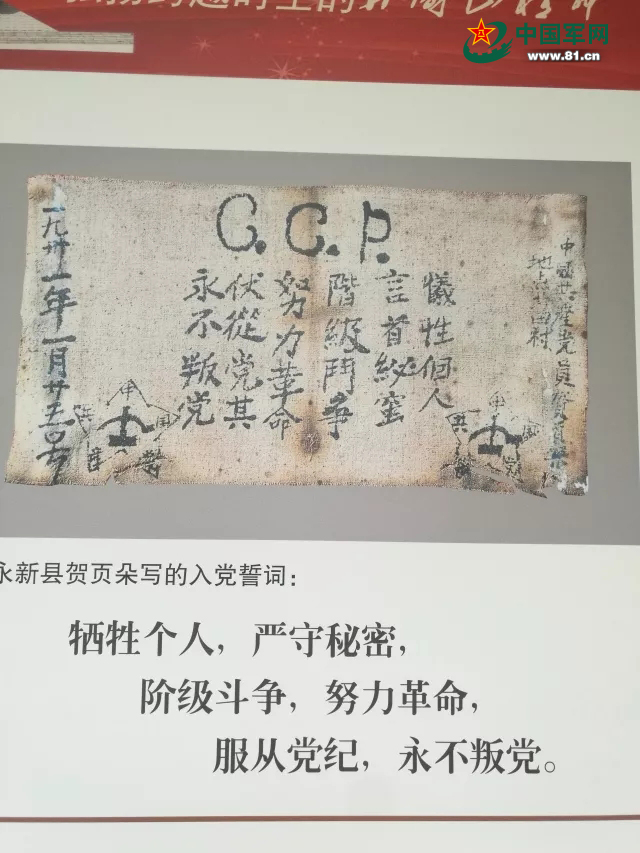 中国军网
www.81.cn
C.C.P.
中國共產党員
犧牲個人
言首秘蜜
階級鬥争
努力革命
伏從党其
永不叛党
一九卅一年一月廿五号
永新县贺页朵写的入党誓词：
牺牲个人，严守秘密，
阶级斗争，努力革命，
服从党纪，永不叛党。